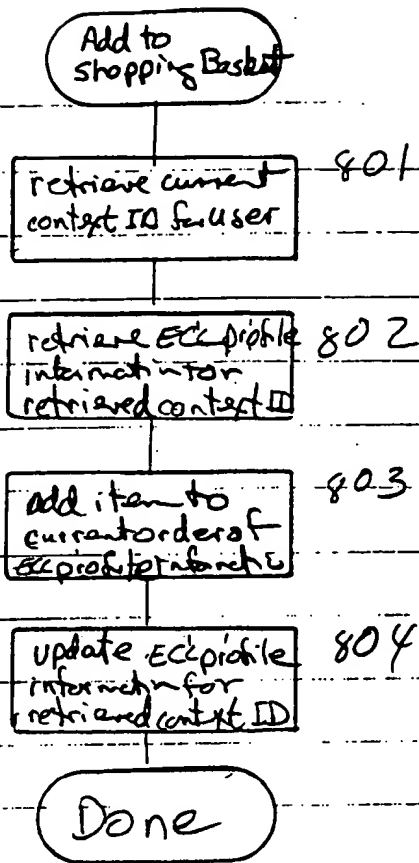 Add to
shopping Basket
801
retrieve current
context ID for user
802
retrieve ECC profile
information for
retrieved context ID
803
add item to
current order of
ECC profile
804
update ECC profile
information for
retrieved context ID
Done